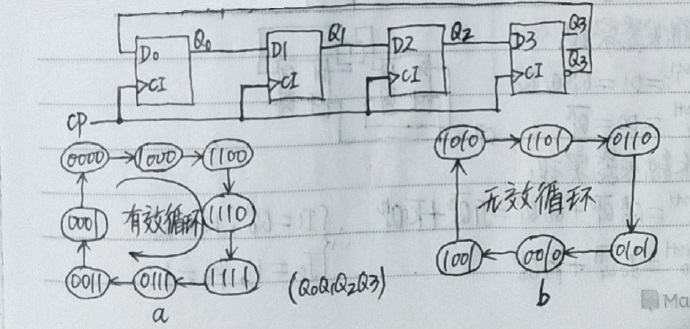 Q3
D0 Q0 D1 Q1 D2 Q2 D3 Q̅3
CI CI CI CI
CP
0000 1000 1100 1010 1101 0110
0001 有效循环 1110 无效循环
0011 0111 1111 (Q0Q1Q2Q3) 1001 0010 0101
a b
Ma